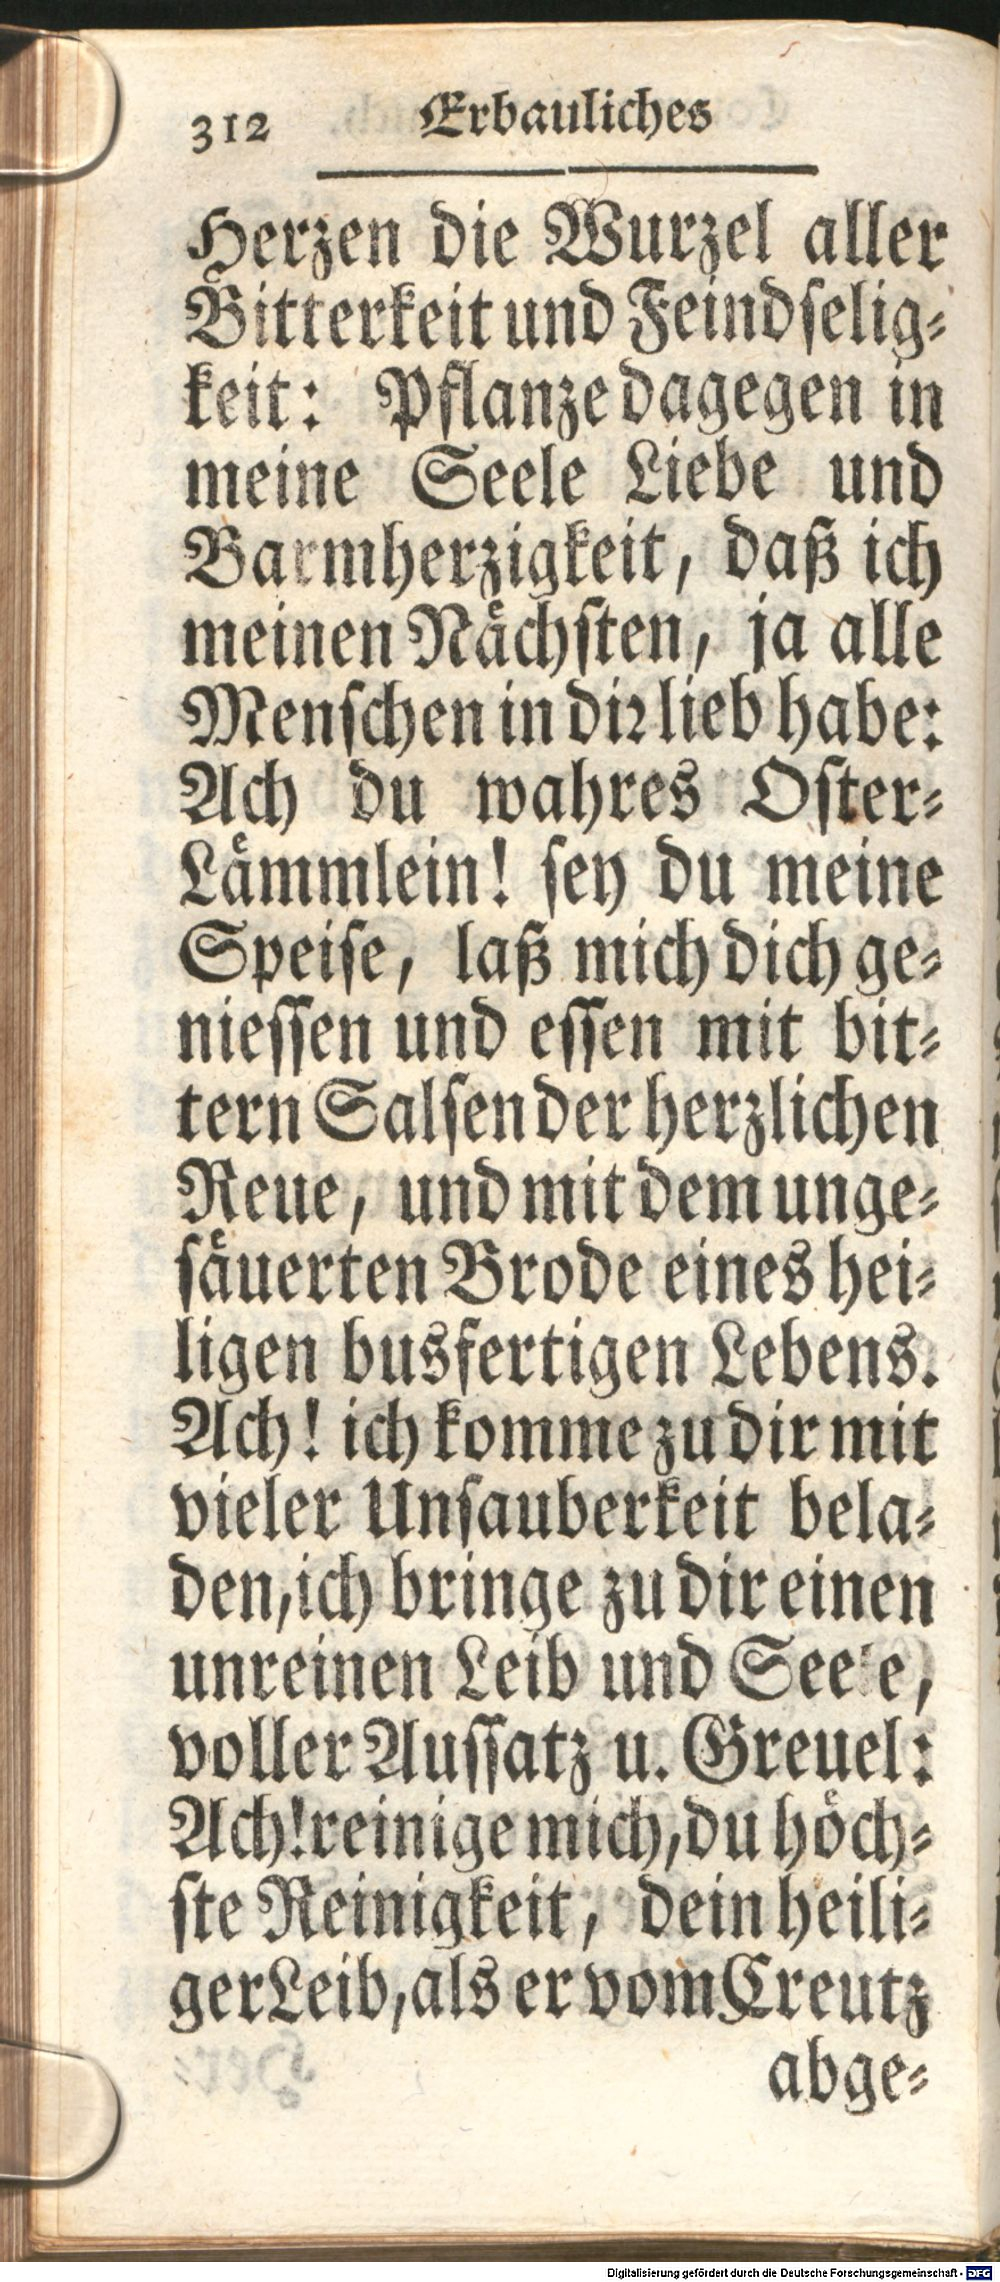 312 Erbauliches
Herzen die Wurzel aller
Bitterkeit und Feindselig-
keit: Pflanze dagegen in
meine Seele Liebe und
Barmherzigkeit, daß ich
meinen Nächsten, ja alle
Menschen in dir lieb habe:
Ach du wahres Oster-
Lämmlein! sey du meine
Speise, laß mich dich ge-
niessen und essen mit bit-
tern Salsen der herzlichen
Reue, und mit dem unge-
säuerten Brode eines hei-
ligen busfertigen Lebens.
Ach! ich komme zu dir mit
vieler Unsauberkeit bela-
den, ich bringe zu dir einen
unreinen Leib und Seele,
voller Aussatz u. Greuel:
Ach! reinige mich, du höch-
ste Reinigkeit, dein heili-
ger Leib, als er vom Creutz
abge-
Digitalisierung gefördert durch die Deutsche Forschungsgemeinschaft - DFG